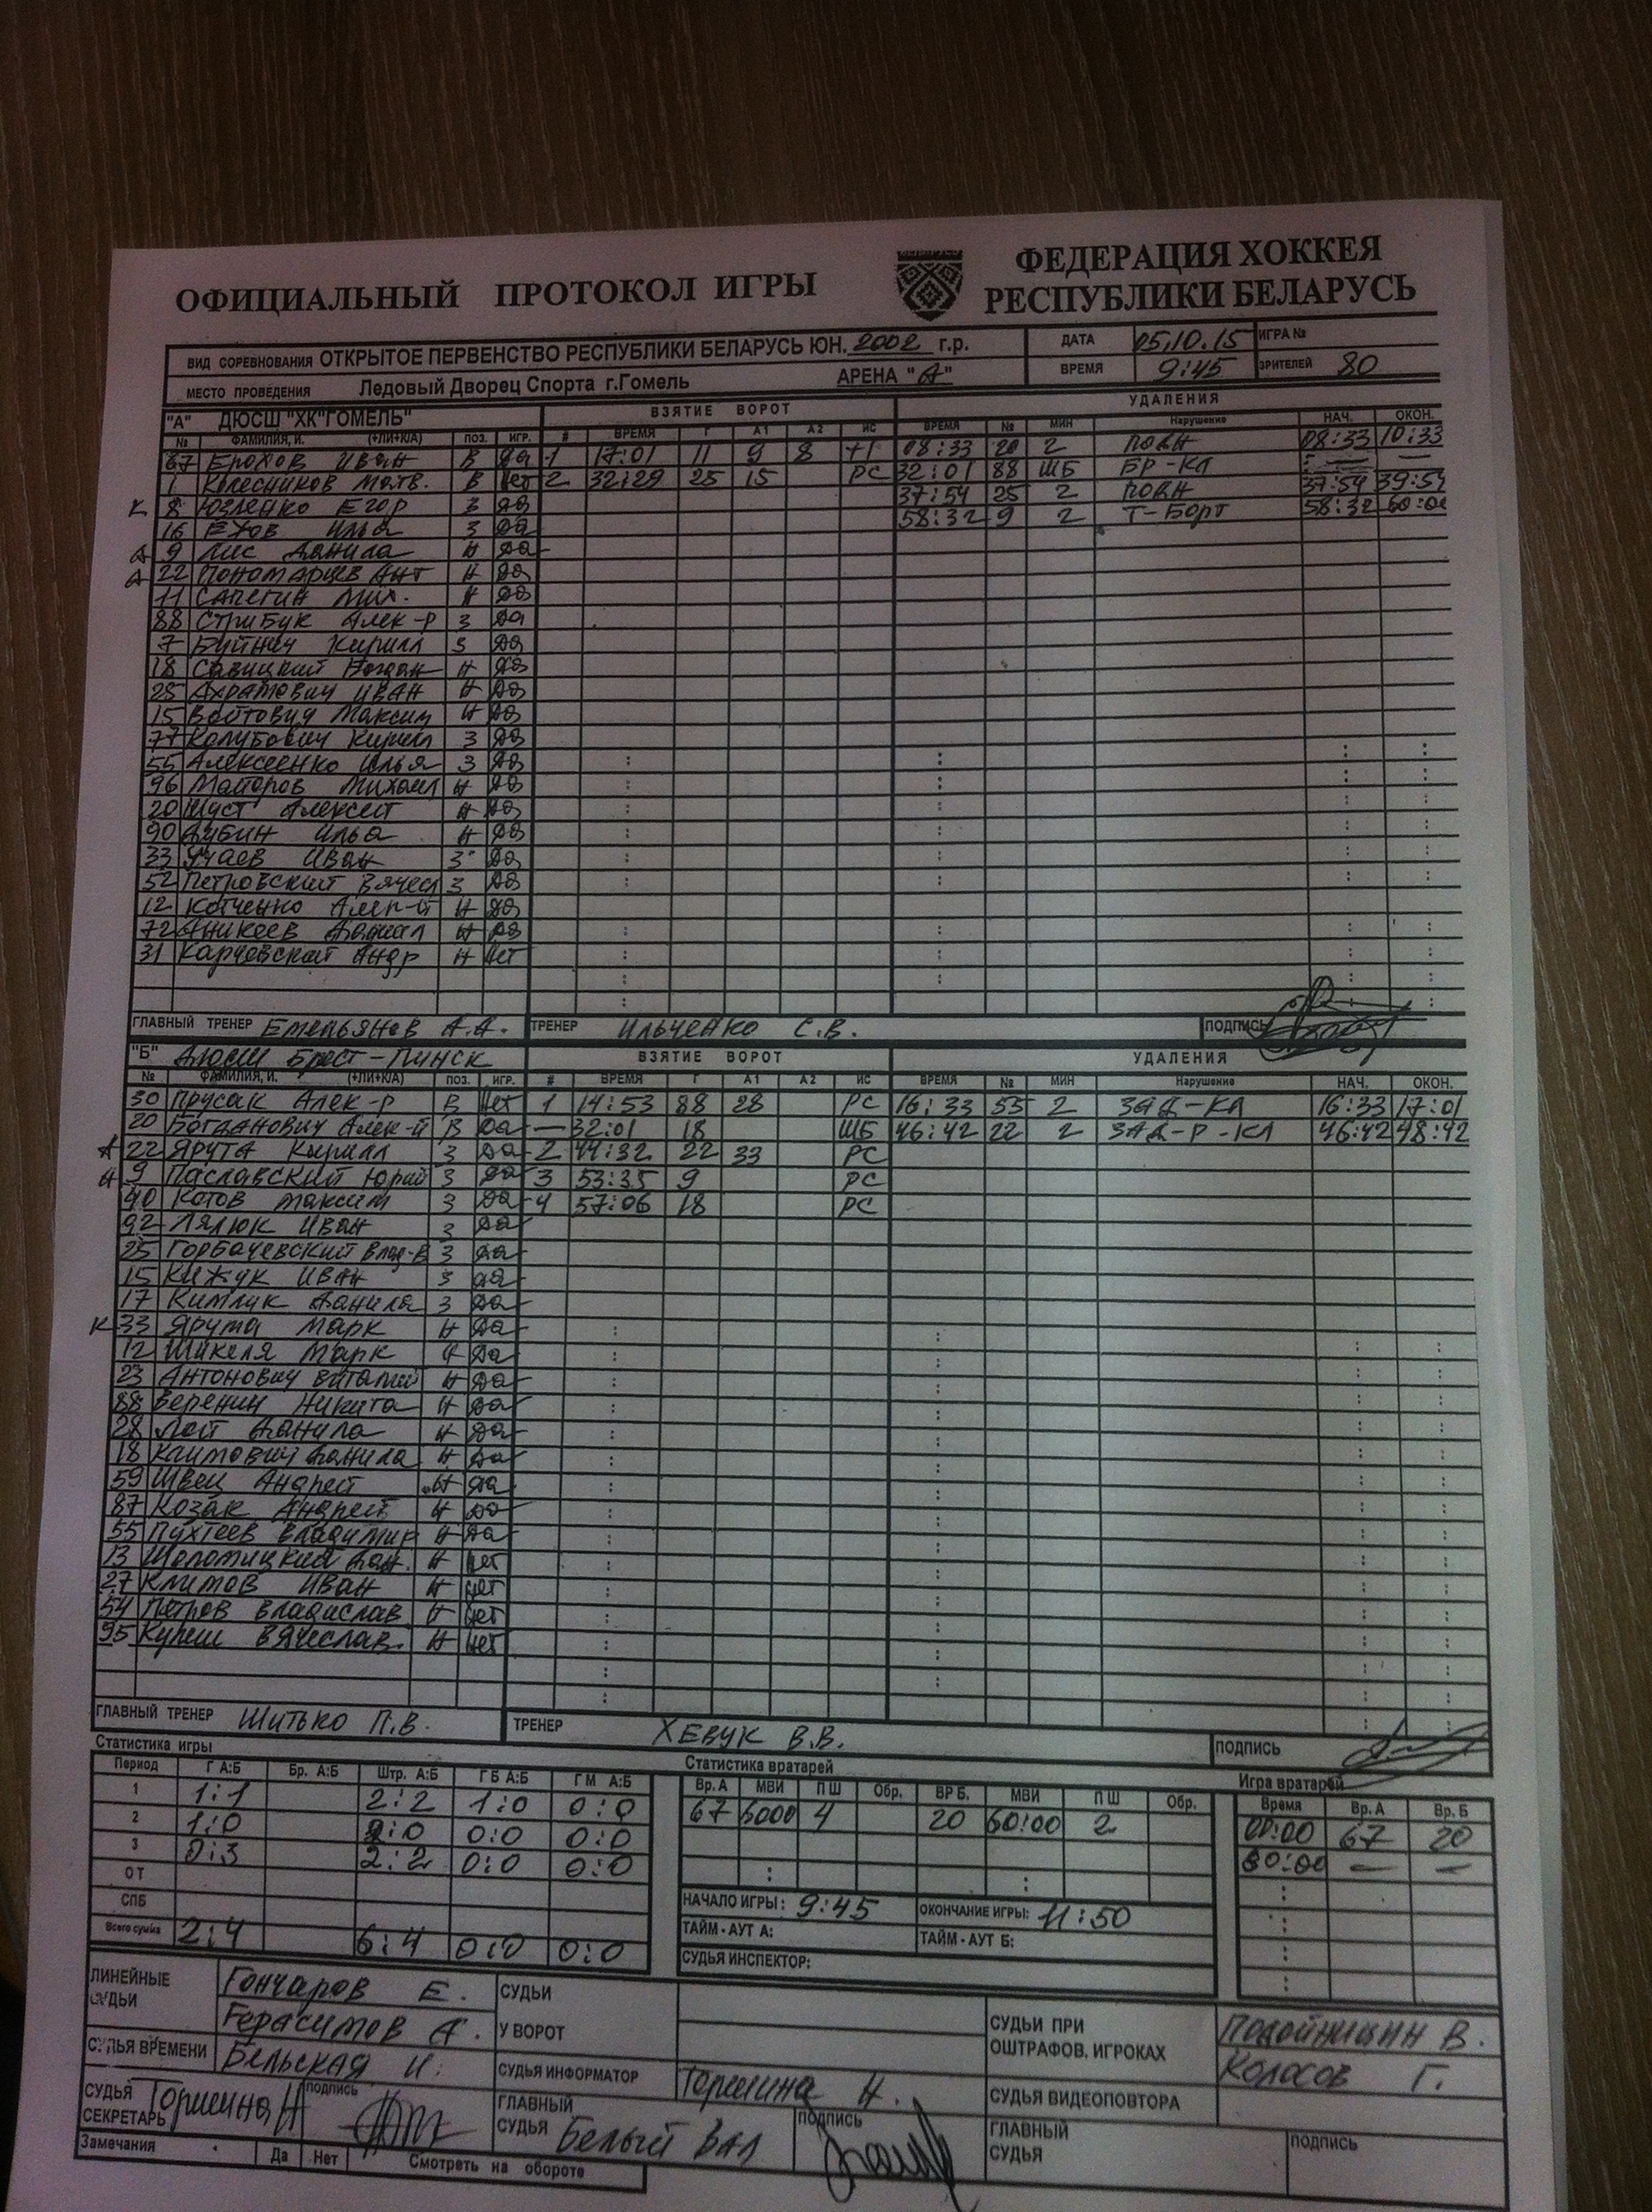 ОФИЦИАЛЬНЫЙ ПРОТОКОЛ ИГРЫ
ФЕДЕРАЦИЯ ХОККЕЯ
РЕСПУБЛИКИ БЕЛАРУСЬ
ВИД СОРЕВНОВАНИЯ ОТКРЫТОЕ ПЕРВЕНСТВО РЕСПУБЛИКИ БЕЛАРУСЬ ЮН. 2002 г.р. ДАТА 05.10.15 ИГРА №
МЕСТО ПРОВЕДЕНИЯ Ледовый Дворец Спорта г.Гомель АРЕНА "А" ВРЕМЯ 9:45 ЗРИТЕЛЕЙ 80
"А" ДЮСШ "ХК"ГОМЕЛЬ" ВЗЯТИЕ ВОРОТ УДАЛЕНИЯ
№ ФАМИЛИЯ, И. (+ЛИ+К/А) ПОЗ. ИГР. # ВРЕМЯ Г А1 А2 ИС ВРЕМЯ № МИН Нарушение НАЧ. ОКОН.
67 Ерохов Иван В Да 1 17:01 11 9 8 +1 08:33 20 2 ПОДН 08:33 10:33
1 Колесников Матв. В Нет 2 32:29 25 15 РС 32:01 88 ШБ БР-КЛ : — —
К 8 Юзленко Егор З Да 37:54 25 2 ПОДН 37:54 39:54
16 Ехов Илья З Да 58:32 9 2 Т-Борт 58:32 60:00
А 9 Лис Данила Н Да
А 22 Пономарцев Ант Н Да
11 Сапегин Мих. Н Да
88 Стрибук Алек-р З Да
7 Буйнич Кирилл З Да
18 Савицкий Богдан Н Да
25 Ахрамович Иван Н Да
15 Войтович Максим Н Да
77 Колубович Кирилл З Да
55 Алексеенко Илья З Да
96 Майоров Михаил Н Да
20 Шуст Алексей Н Да
90 Дубин Илья Н Да
33 Учаев Иван З Да
52 Петровский Вячесл З Да
12 Котченко Алек-й Н Да
72 Аникеев Даниал Н Да
31 Карчевский Андр Н Нет
ГЛАВНЫЙ ТРЕНЕР Емельянов А.А. ТРЕНЕР Ильченко С.В. ПОДПИСЬ
"Б" ДЮСШ Брест-Пинск ВЗЯТИЕ ВОРОТ УДАЛЕНИЯ
№ ФАМИЛИЯ, И. (+ЛИ+К/А) ПОЗ. ИГР. # ВРЕМЯ Г А1 А2 ИС ВРЕМЯ № МИН Нарушение НАЧ. ОКОН.
30 Прусак Алек-р В Нет 1 14:53 88 28 РС 16:33 55 2 ЗАД-КЛ 16:33 17:01
20 Богданович Алек-й В Да — 32:01 18 ШБ 46:42 22 2 ЗАД-Р-КЛ 46:42 48:42
А 22 Ярута Кирилл З Да 2 44:32 22 33 РС
А 9 Паславский Юрий З Да 3 53:35 9 РС
40 Котов Максим З Да 4 57:06 18 РС
92 Лялюк Иван З Да
25 Горбачевский Влад-в З Да
15 Кижук Иван З Да
17 Кимлук Данила З Да
К 33 Ярута Марк Н Да
12 Шикеля Марк Н Да
23 Антонович Виталий Н Да
88 Веренич Никита Н Да
28 Лой Данила Н Да
18 Климович Данила Н Да
59 Швец Андрей Н Да
87 Козак Андрей Н Да
55 Пухтеев Владимир Н Да
13 Шеломицкий Дан. Н Нет
27 Климов Иван Н Нет
54 Петров Владислав Н Нет
95 Купеш Вячеслав. Н Нет
ГЛАВНЫЙ ТРЕНЕР Шитько П.В. ТРЕНЕР Хевук В.В. ПОДПИСЬ
Статистика игры Статистика вратарей Игра вратарей
Период Г А:Б Бр. А:Б Штр. А:Б Г Б А:Б Г М А:Б Вр. А МВИ П Ш Обр. ВР Б. МВИ П Ш Обр. Время Вр. А Вр. Б
1 1:1 2:2 1:0 0:0 67 6000 4 20 60:00 2 00:00 67 20
2 1:0 2:0 0:0 0:0 60:00 — —
3 0:3 2:2 0:0 0:0
ОТ
СПБ
НАЧАЛО ИГРЫ: 9:45 ОКОНЧАНИЕ ИГРЫ: 11:50
Всего сумма 2:4 6:4 0:0 0:0 ТАЙМ - АУТ А: ТАЙМ - АУТ Б:
СУДЬЯ ИНСПЕКТОР:
ЛИНЕЙНЫЕ СУДЬИ Гончаров Е. СУДЬИ У ВОРОТ СУДЬИ ПРИ ОШТРАФОВ. ИГРОКАХ Подойницин В.
Герасимов А. Колосов Г.
СУДЬЯ ВРЕМЕНИ Бельская И. СУДЬЯ ИНФОРМАТОР Торшина Н. СУДЬЯ ВИДЕОПОВТОРА
СУДЬЯ СЕКРЕТАРЬ Торшина Н ПОДПИСЬ ГЛАВНЫЙ СУДЬЯ Белый Вал ПОДПИСЬ ГЛАВНЫЙ СУДЬЯ ПОДПИСЬ
Замечания Да Нет Смотреть на обороте